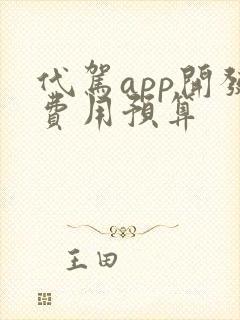 代駕app開發
費用預算
王田